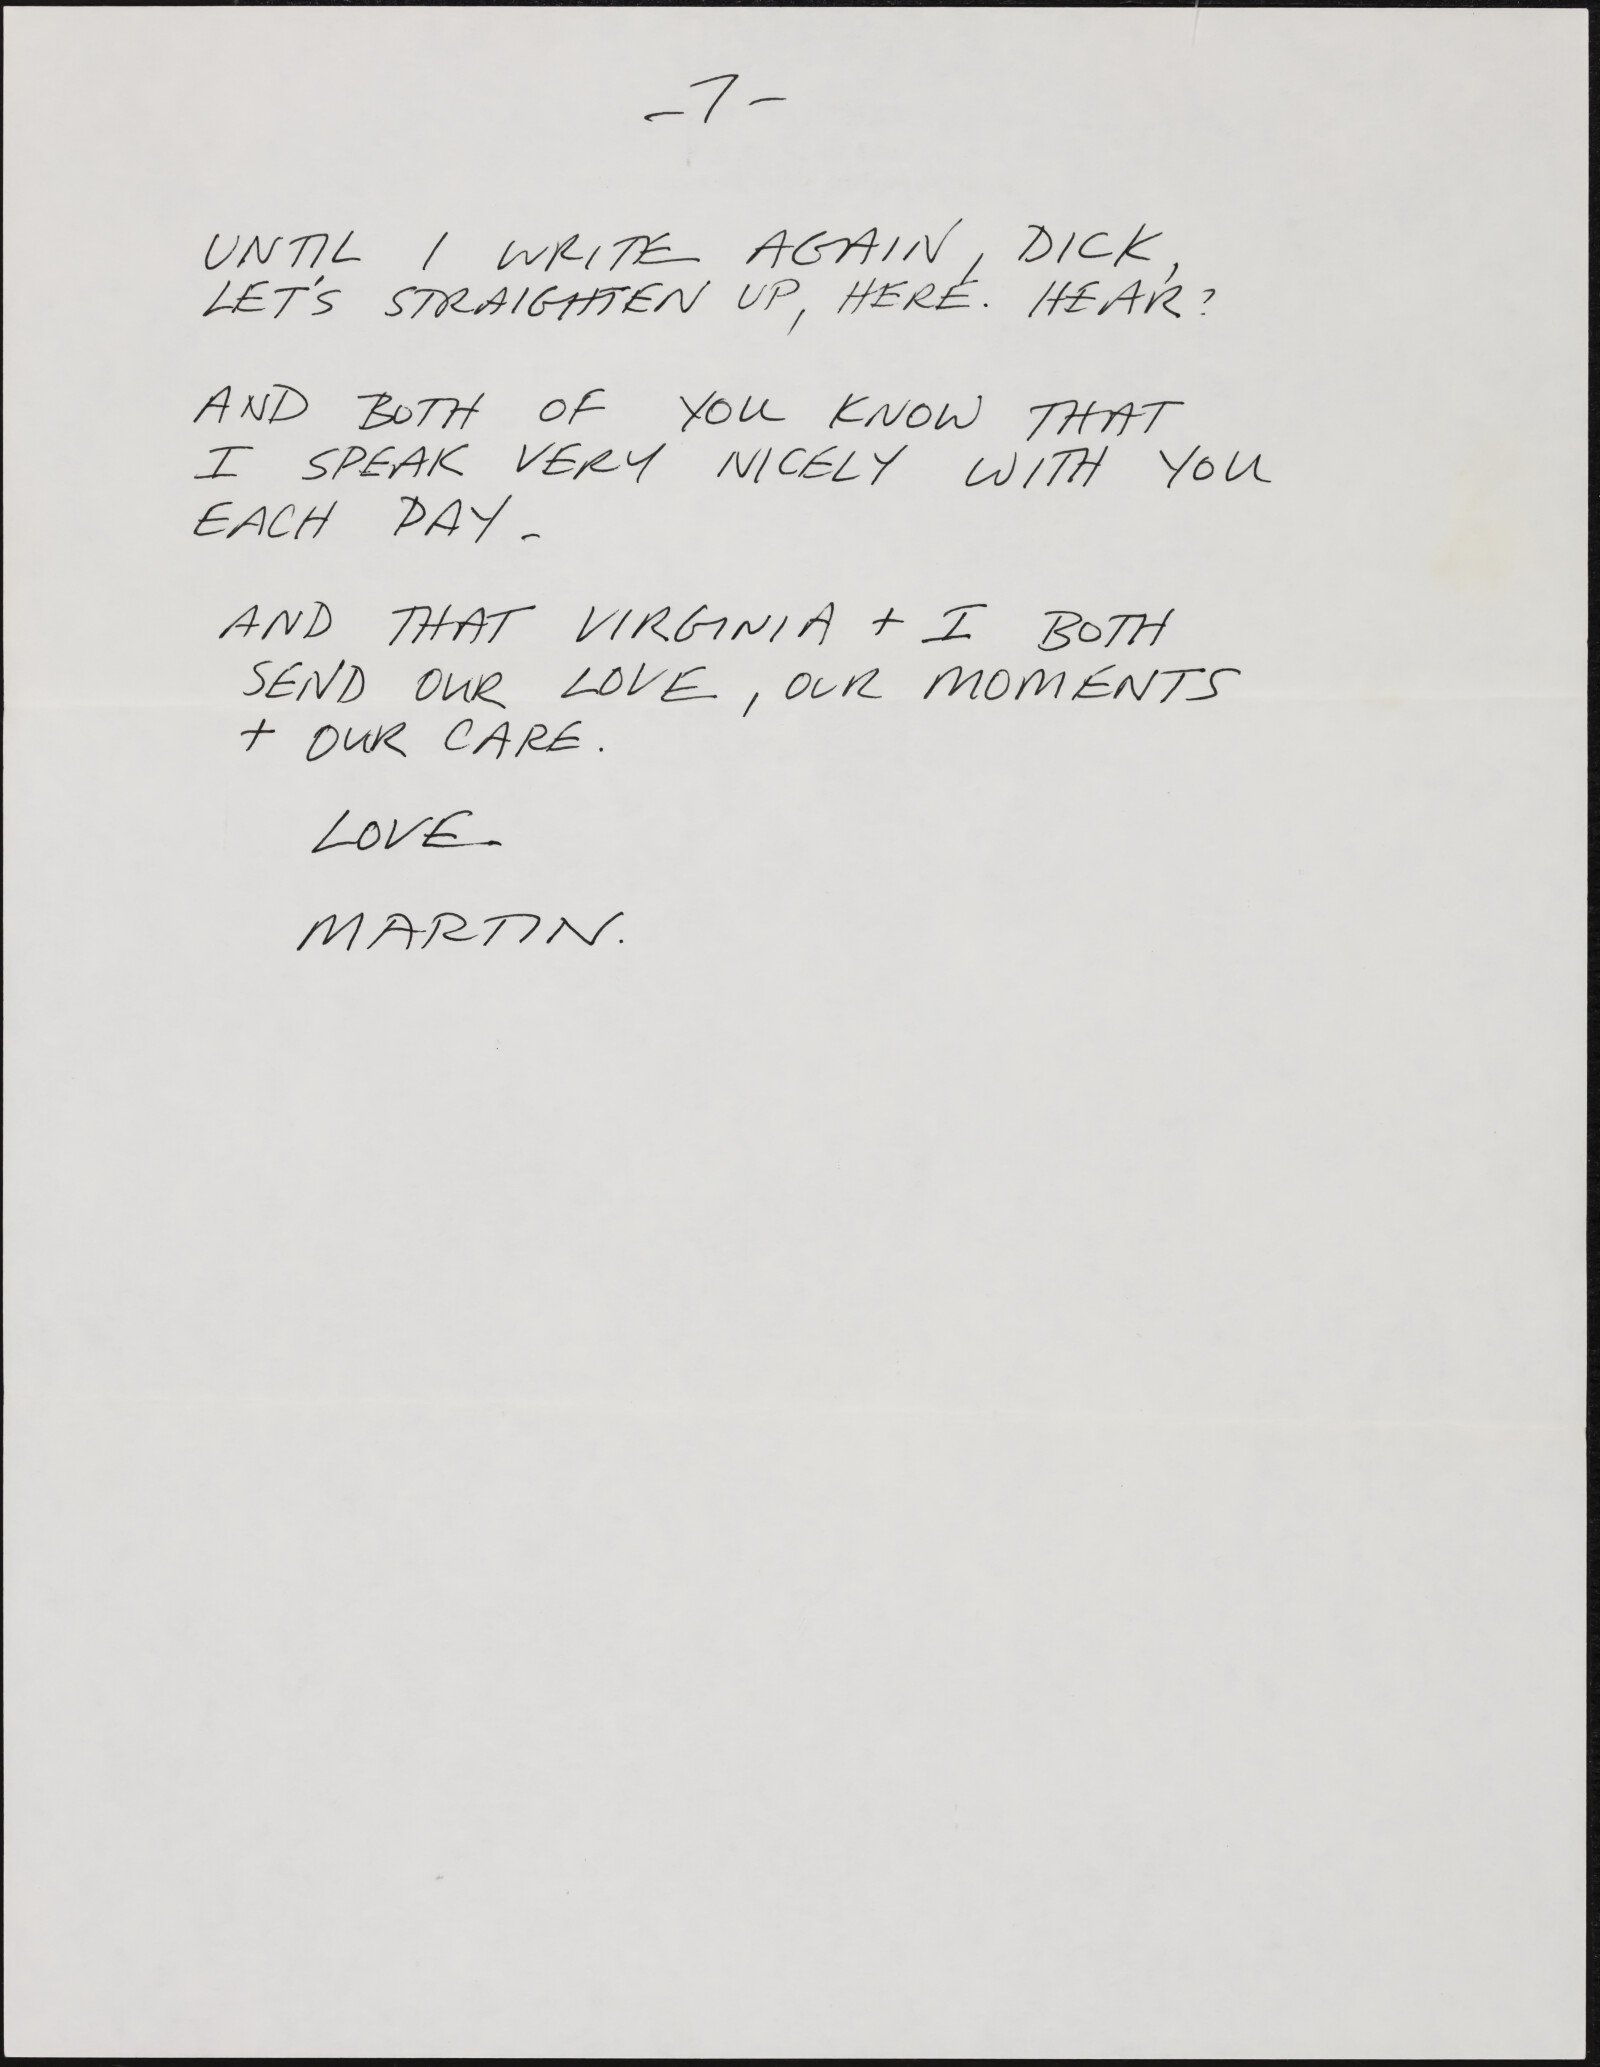 -7-
UNTIL I WRITE AGAIN, DICK,
LET'S STRAIGHTEN UP, HERE. HEAR?
AND BOTH OF YOU KNOW THAT
I SPEAK VERY NICELY WITH YOU
EACH DAY.
AND THAT VIRGINIA + I BOTH
SEND OUR LOVE, OUR MOMENTS
+ OUR CARE.
LOVE.
MARTIN.